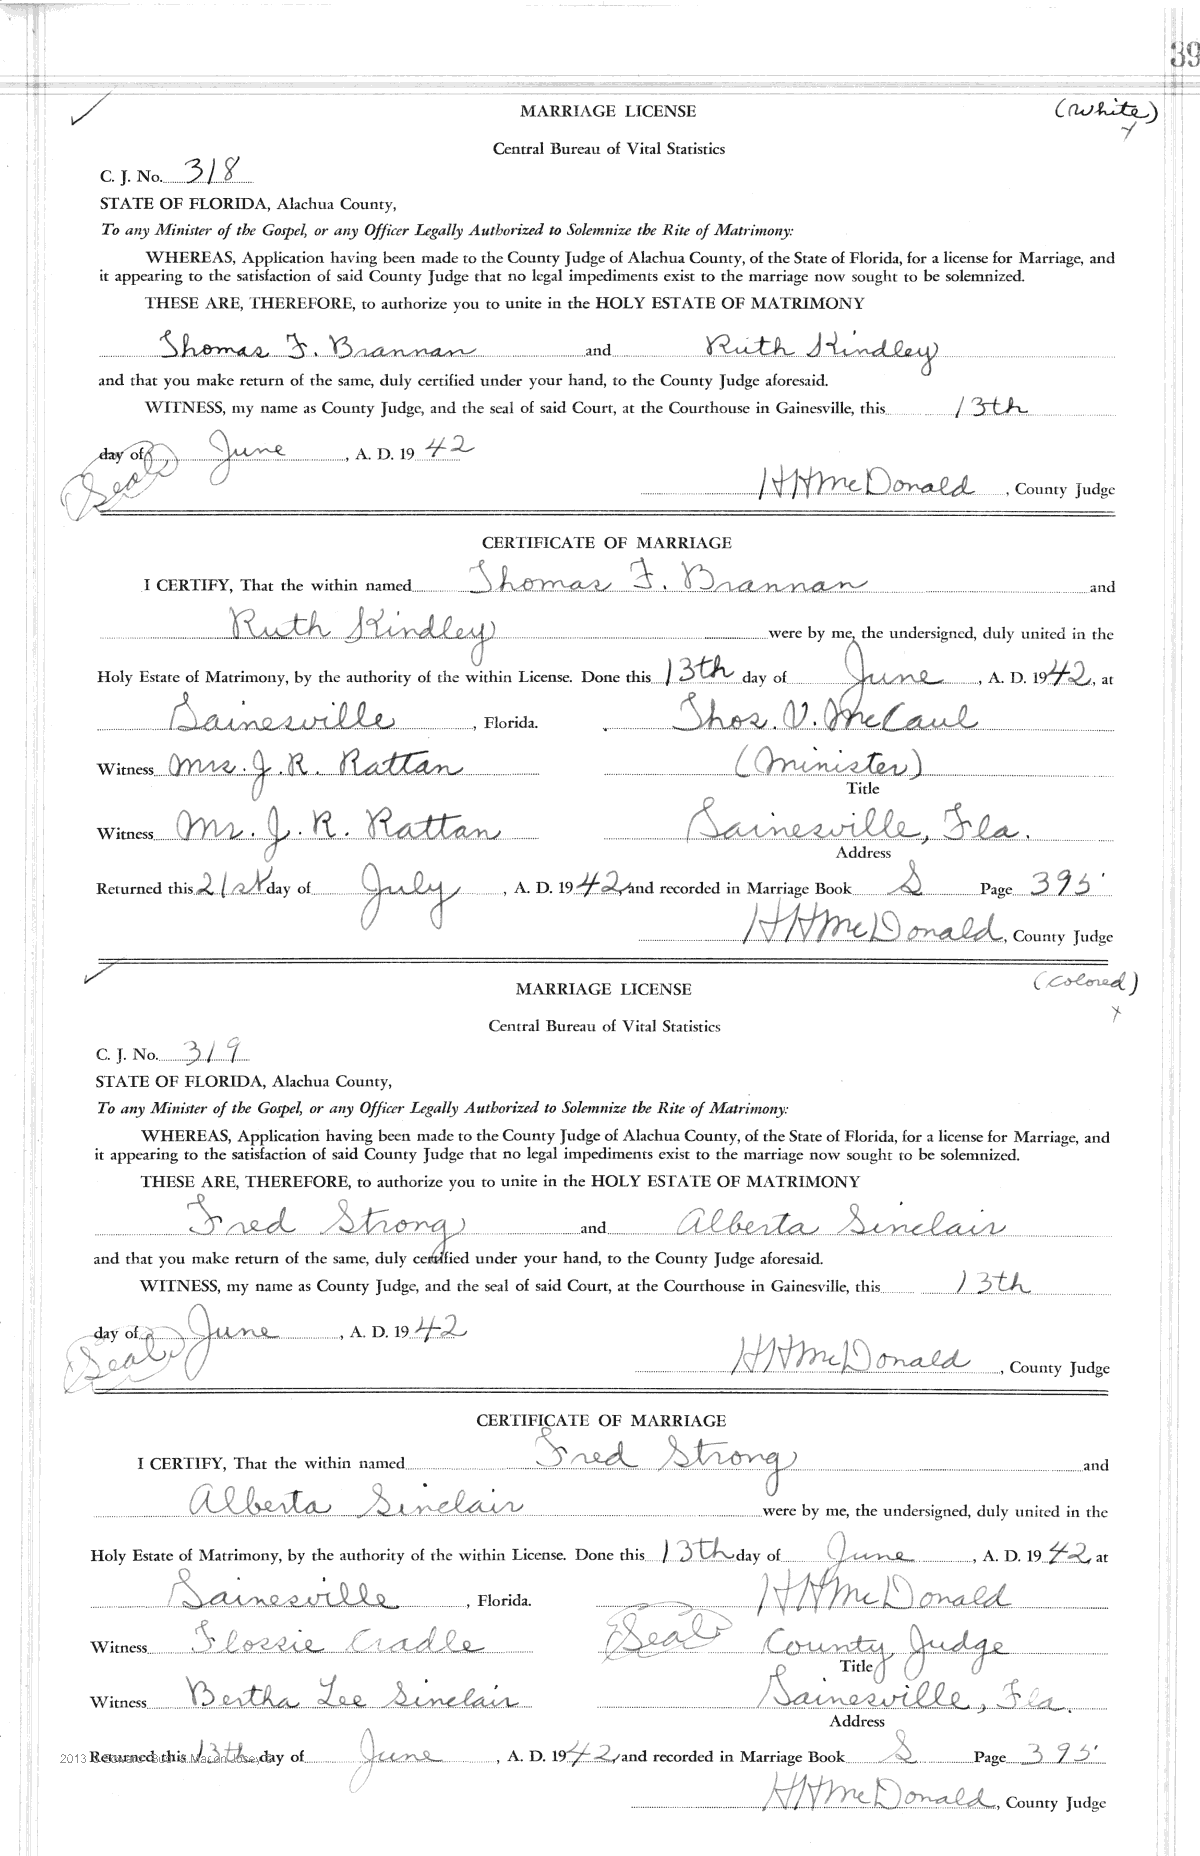 39
MARRIAGE LICENSE (White)
Central Bureau of Vital Statistics
C. J. No. 318
STATE OF FLORIDA, Alachua County,
To any Minister of the Gospel, or any Officer Legally Authorized to Solemnize the Rite of Matrimony:
WHEREAS, Application having been made to the County Judge of Alachua County, of the State of Florida, for a license for Marriage, and
it appearing to the satisfaction of said County Judge that no legal impediments exist to the marriage now sought to be solemnized.
THESE ARE, THEREFORE, to authorize you to unite in the HOLY ESTATE OF MATRIMONY
Thomas F. Brannan and Ruth Kindley
and that you make return of the same, duly certified under your hand, to the County Judge aforesaid.
WITNESS, my name as County Judge, and the seal of said Court, at the Courthouse in Gainesville, this 13th
day of June, A. D. 19 42
(Seal) HHMcDonald, County Judge
CERTIFICATE OF MARRIAGE
I CERTIFY, That the within named Thomas F. Brannan and
Ruth Kindley were by me, the undersigned, duly united in the
Holy Estate of Matrimony, by the authority of the within License. Done this 13th day of June, A. D. 1942, at
Gainesville, Florida. Thos. V. McCaul
Witness Mrs. J. R. Rattan (Minister)
Title
Witness Mr. J. R. Rattan Gainesville, Fla.
Address
Returned this 21st day of July, A. D. 1942, and recorded in Marriage Book S Page 395
HHMcDonald, County Judge
MARRIAGE LICENSE (Colored)
Central Bureau of Vital Statistics
C. J. No. 319
STATE OF FLORIDA, Alachua County,
To any Minister of the Gospel, or any Officer Legally Authorized to Solemnize the Rite of Matrimony:
WHEREAS, Application having been made to the County Judge of Alachua County, of the State of Florida, for a license for Marriage, and
it appearing to the satisfaction of said County Judge that no legal impediments exist to the marriage now sought to be solemnized.
THESE ARE, THEREFORE, to authorize you to unite in the HOLY ESTATE OF MATRIMONY
Fred Strong and Alberta Sinclair
and that you make return of the same, duly certified under your hand, to the County Judge aforesaid.
WITNESS, my name as County Judge, and the seal of said Court, at the Courthouse in Gainesville, this 13th
day of June, A. D. 19 42
(Seal) HHMcDonald, County Judge
CERTIFICATE OF MARRIAGE
I CERTIFY, That the within named Fred Strong and
Alberta Sinclair were by me, the undersigned, duly united in the
Holy Estate of Matrimony, by the authority of the within License. Done this 13th day of June, A. D. 1942, at
Gainesville, Florida. HHMcDonald
Witness Flossie Cradle (Seal) County Judge
Title
Witness Bertha Lee Sinclair Gainesville, Fla.
Address
2013
Returned this 13th day of June, A. D. 1942, and recorded in Marriage Book S Page 395
HHMcDonald, County Judge